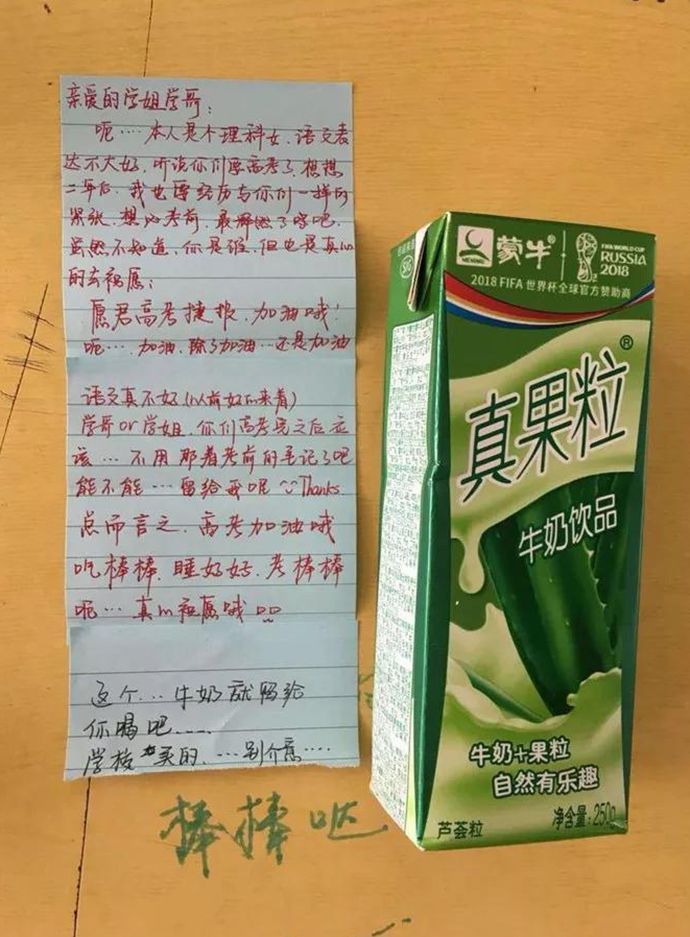 亲爱的学姐学哥：
呃…·本人是个理科女，语文表
达不大好，听说你们要高考了，想想
二年后，我也要经历与你们一样的
紧张，想必考前，最麻烦了字吧，
虽然不知道，你是谁，但也是真心
的去祝愿：
愿君高考捷报，加油哦！
呃…加油，除了加油…还是加油
语文真不好(以前好的来着)
学哥or学姐，你们高考完之后应
该…不用那着考前的笔记了吧
能不能…留给我呢Thanks.
总而言之，高考加油哦
吃棒棒，睡好好，考棒棒
呃…真心祝愿哦
这个…牛奶就留给
你喝吧……
学校买的，…别介意…·
棒棒哒
蒙牛
MENGNIU
FIFA WORLD CUP
RUSSIA
2018
2018 FIFA 世界杯全球官方赞助商
真果粒®
牛奶饮品
牛奶+果粒
自然有乐趣
芦荟粒
净含量：250g